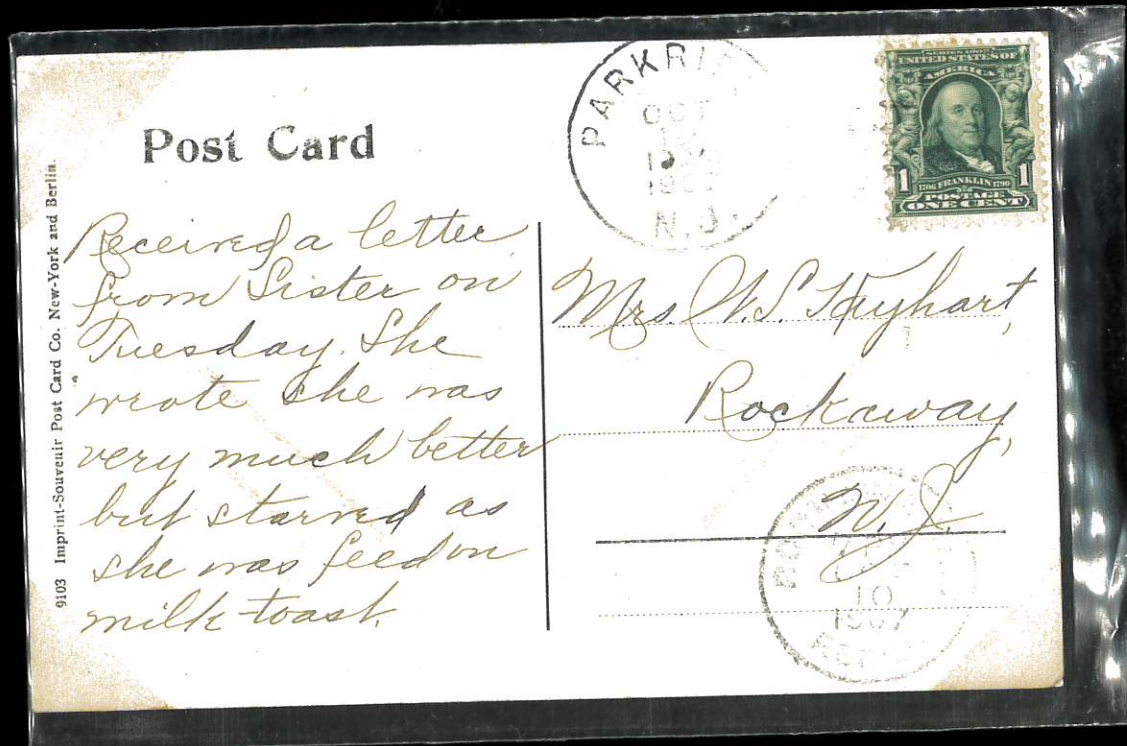 Post Card
9103 Imprint-Souvenir Post Card Co. New-York and Berlin.
Received a letter
from Sister on
Tuesday. She
wrote she was
very much better
but starved as
she was feed on
milk-toast.
PARKRI
OCT
1907
N.J.
SERIES 1902
UNITED STATES OF
AMERICA
1 1
1706 FRANKLIN 1790
POSTAGE
ONE CENT
Mrs. W. S. Hayhart,
Rockaway,
N. J.
10
1907